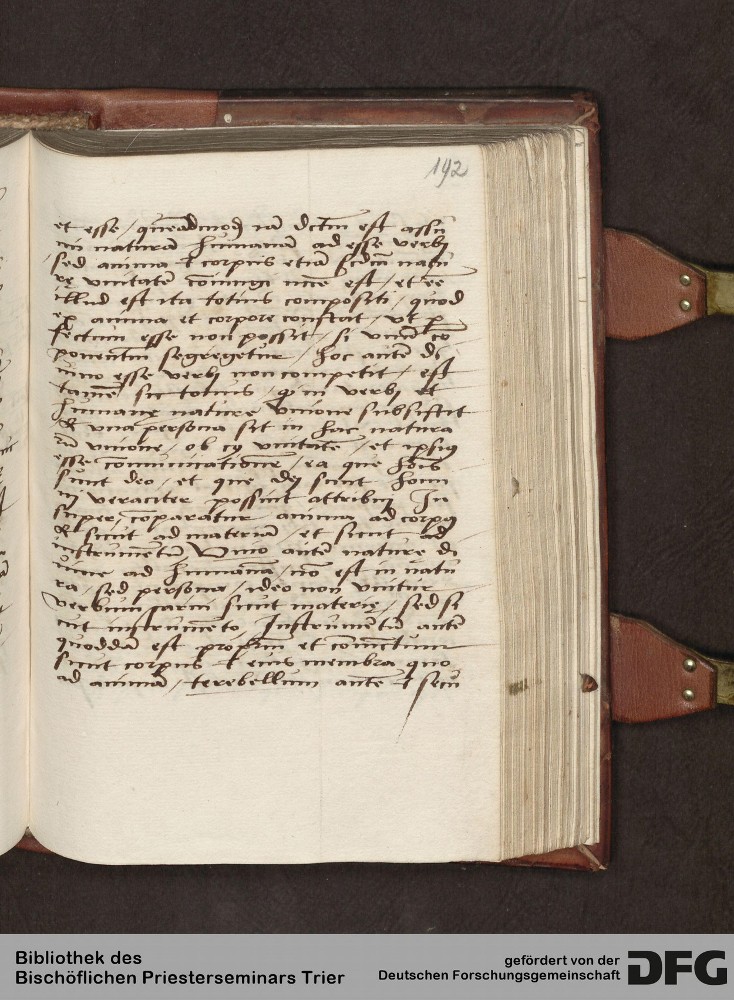 192
et esse / quēadmodȝ iā dctm̄ est assū
mi naturā humanā ad esse verbi
sed anima &amp; corpus etiā scdm̄ natu
rę vnitatē coniungi nccē est / et eē
illud est ita totius compositi / quod
ex anima et corpore constat / vt p
fectum esse non possit / si vnum cō
ponentiū segregetur / hoc autē di
uino esse verbi non competit / est
tamē sic totius / qd in verbi et
humanę naturę vnione subsistit
&amp; vna persona sit in hac natura
rū vnione / ob cꝰ vnitatē / et ipsiꝰ
esse cōmunicationē / ea que hōis
sunt deo / et que dei sunt homi
ni veraciter possint attribui In
super / cōparatur anima ad corpꝰ
&amp; sicut ad materiā / et sicut ad
instrumētū Vnio autē naturę di
uine ad humanā / nō est in natu
ra / sed persona / ideo non vnitur
verbum carni sicut materię / sed si
cut instrumēto Instrumētū autē
quoddā est propriū et coniunctum
sicut corpus &amp; eius membra quo
ad animā / terebellum autē &amp; secu
Bibliothek des
Bischöflichen Priesterseminars Trier
gefördert von der
Deutschen Forschungsgemeinschaft
DFG